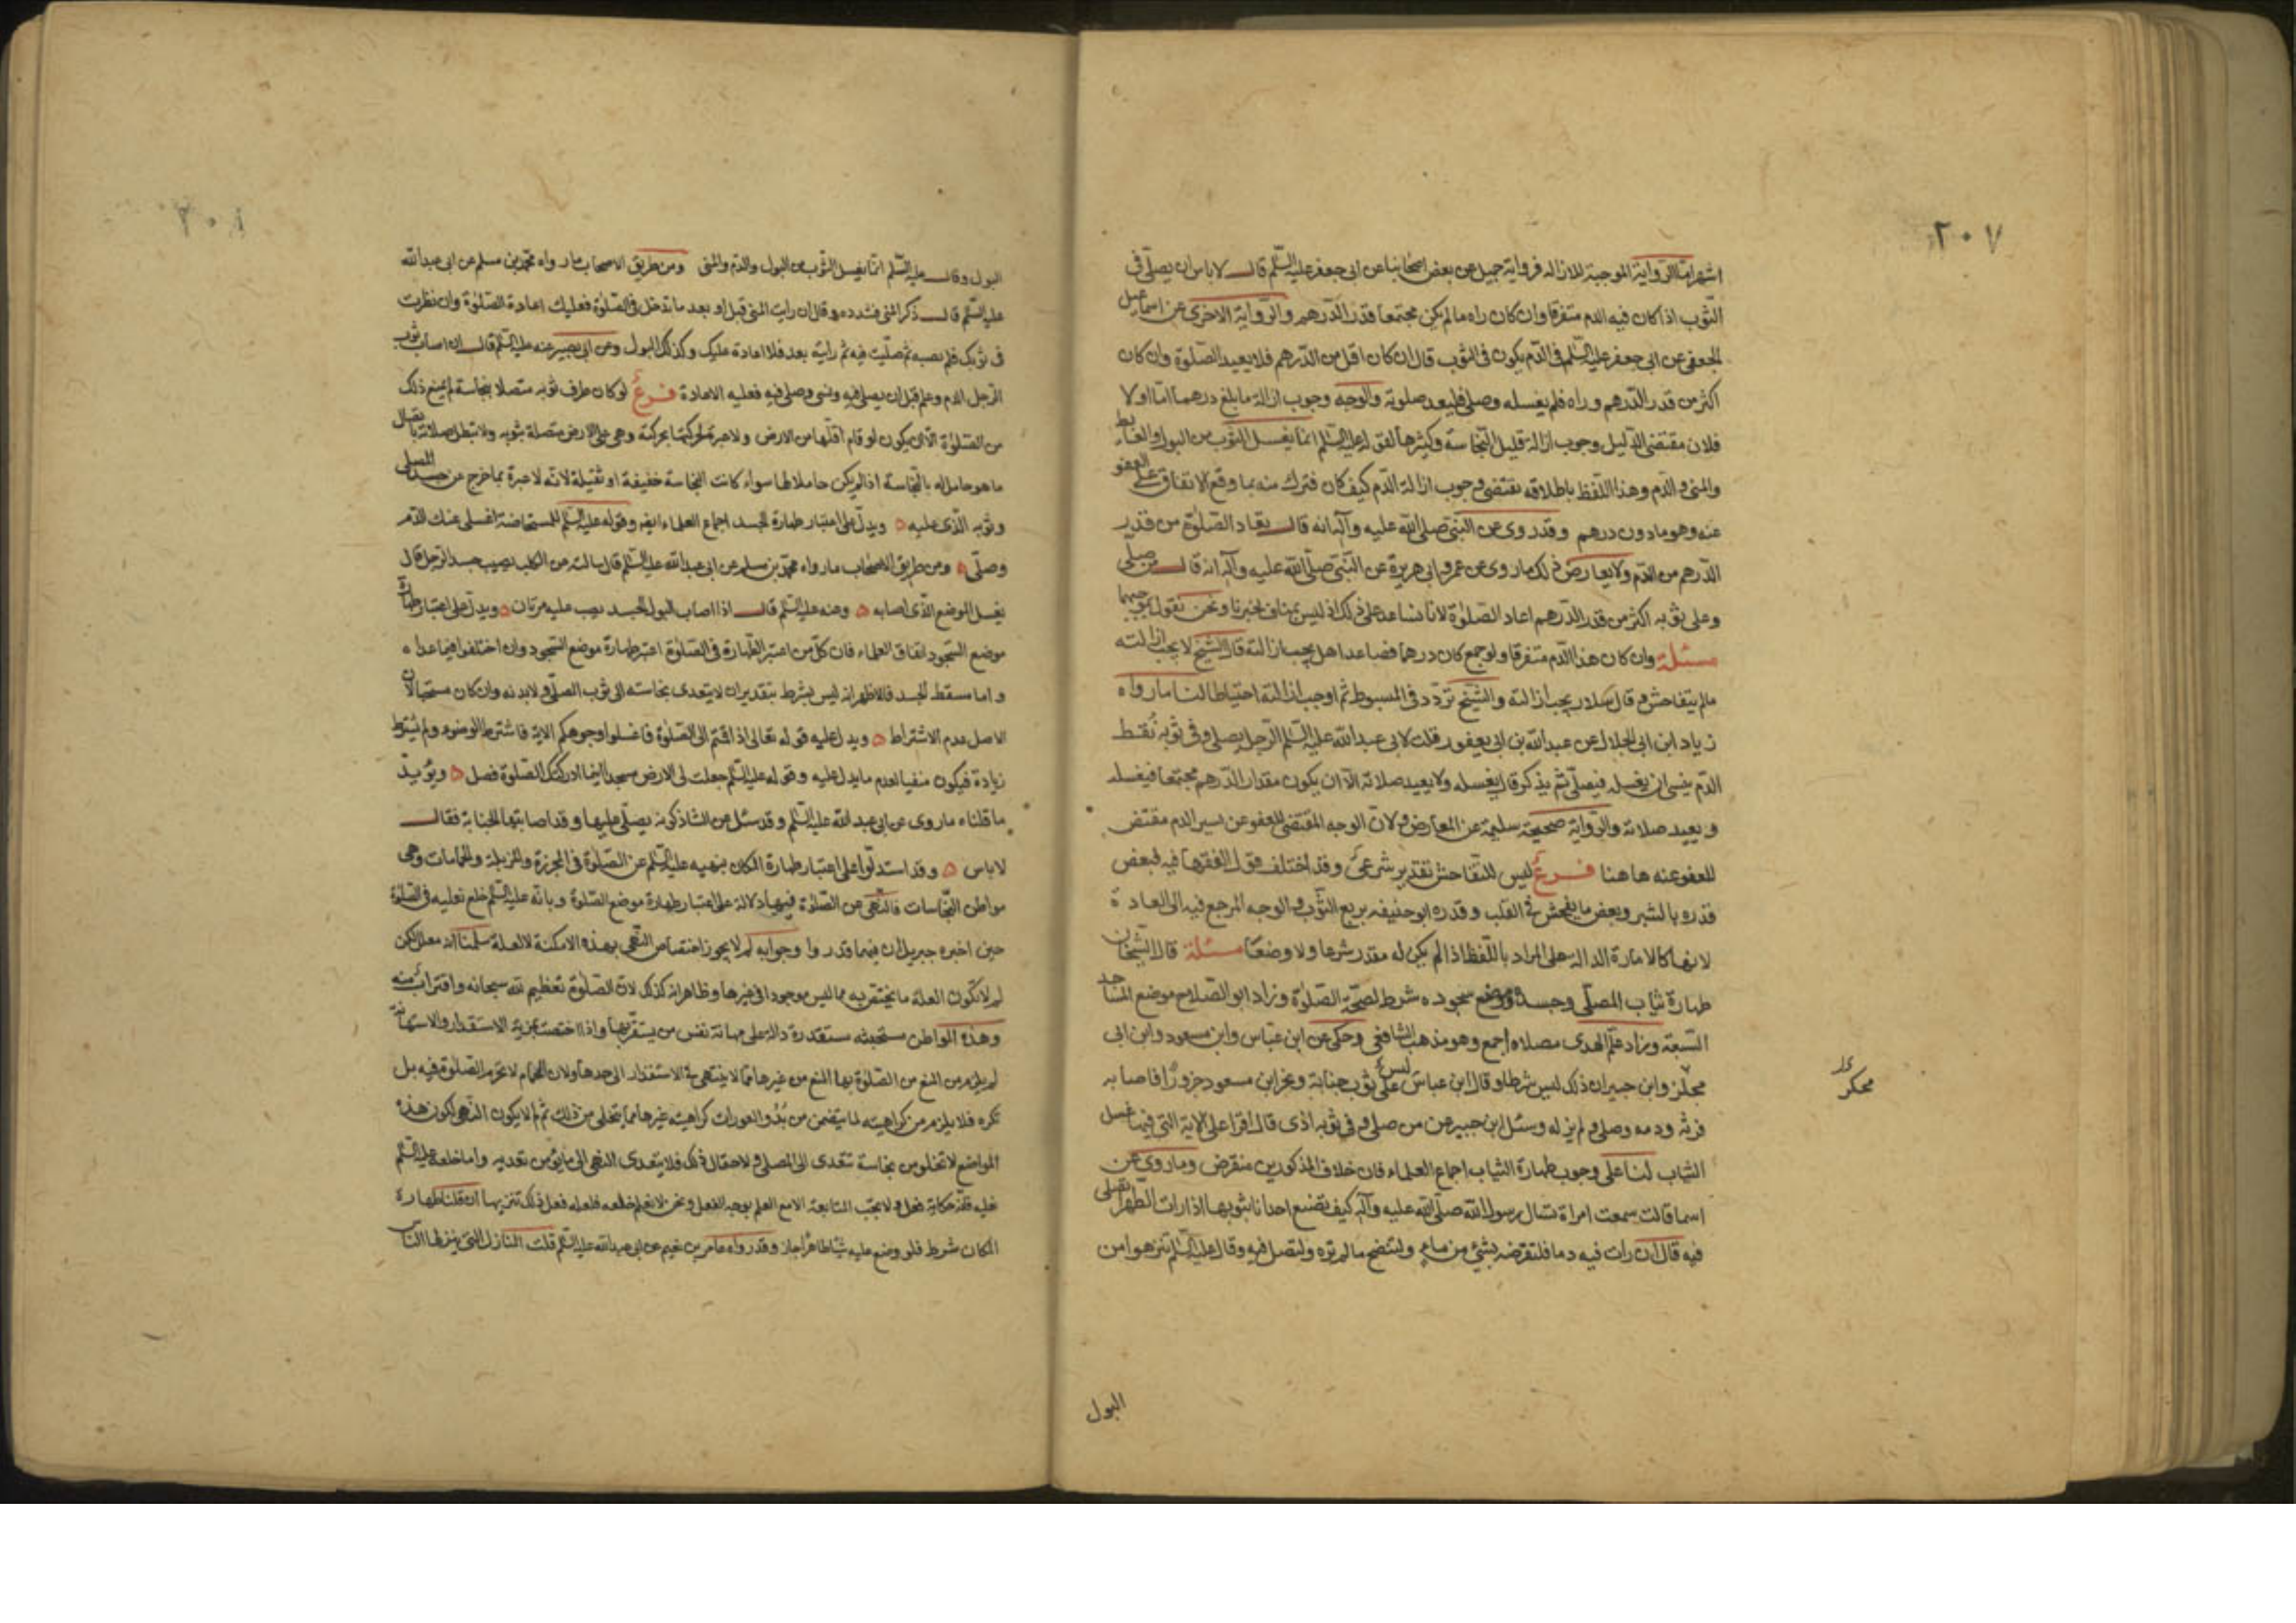 ٢٠٧
اشهر اما الرواية الموجبة للازاله فرواية جميل عن بعض اصحابنا عن ابى جعفر عليه السلم قال لا باس ان يصلى فى
الثوب اذا كان فيه الدم متفرقا وان كان راه ما لم يكن مجتمعا قدر الدرهم والرواية الاخرى عن اسماعيل
الجعفى عن ابى جعفر عليه السلم فى الدم يكون فى الثوب قال ان كان اقل من الدرهم فلا يعيد الصلوة وان كان
اكثر من قدر الدرهم وراه فلم يغسله وصلى فليعد صلوته والوجه وجوب ازالة ما بلغ درهما اما اولا
فلان مقتضى الدليل وجوب ازالة قليل النجاسة وكثيرها لقوله عليه السلم انما يغسل الثوب من البول والغايط
والمنى والدم وهذا اللفظ باطلاقه يقتضى وجوب ازالة الدم كيف كان فترك منه بما وقع الاتفاق على العفو
عنه وهو ما دون درهم وقد روى عن النبى صلى الله عليه وآله انه قال يعاد الصلوة من قدر
الدرهم من الدم ولا يعارض ذلك ما روى عن عمر وابى هريرة عن النبى صلى الله عليه وآله انه قال من صلى
وعلى ثوبه اكثر من قدر الدرهم اعاد الصلوة لانا نساعد على ذلك اذ ليس بمناف لخبرنا ونحن نقول بموجبهما
مسئلة وان كان هذا الدم متفرقا ولو جمع كان درهما فصاعدا هل يجب ازالته قال الشيخ لا يجب ازالته
ما لم يتفاحش وقال سلار يجب ازالته والشيخ تردد فى المبسوط ثم اوجب ازالته احتياطا لنا ما رواه
زياد ابن ابى الحلال عن عبد الله بن ابى يعفور قلت لابى عبد الله عليه السلم الرجل يصلى وفى ثوبه نقط
الدم ينسى ان يغسله فيصلى ثم يذكر قال يغسله ولا يعيد صلاته الا ان يكون مقدار الدرهم مجتمعا فيغسله
ويعيد صلاته والرواية صحيحة سليمة عن المعارض ولان الوجه المقتضى للعفو عن يسير الدم مقتض
للعفو عنه هاهنا فرع ليس للتفاحش تقدير شرعى وقد اختلف قول الفقهاء فيه فبعض
قدره بالشبر وبعض ما يفحش فى القلب وقدره ابو حنيفه بربع الثوب والوجه المرجع فيه الى العادة
لانها كالامارة الدالة على المراد باللفظ اذا لم يكن له مقدر شرعا ولا وضعا مسئلة قال الشيخان
طهارة ثياب المصلى وجسده وموضع سجوده شرط لصحة الصلوة وزاد ابو الصلاح موضع المساجد
السبعة وزاد علم الهدى مصلاه اجمع وهو مذهب الشافعى وحكى عن ابن عباس وابن مسعود وابن ابى
مجلز وابن جبير ان ذلك ليس شرطا وقال ابن عباس ليس على ثوب جنابة ونحر ابن مسعود جزورا فاصابه
فرثه ودمه وصلى ولم يزله وسئل ابن جبير عن من صلى وفى ثوبه اذى قال اقرا على الاية التى فيها غسل
الثياب لنا على وجوب طهارة الثياب اجماع العلماء فان خلاف المذكورين منقرض وما روى عن
اسما قالت سمعت امراة تسال رسول الله صلى الله عليه وآله كيف تضنع احدانا بثوبها اذا رات الطهر اتصلى
فيه قال ان رات فيه دما فلتقرضه بشئ من ماء ولتنضح ما لم تره ولتصل فيه وقال عليه السلم تنزهوا من
البول
٢٠٨
البول وقال عليه السلم انما يغسل الثوب من البول والدم والمنى ومن طريق الاصحاب ما رواه محمد بن مسلم عن ابى عبد الله
عليه السلم قال ذكر المنى فشدده وقال ان رايت المنى قبل او بعد ما تدخل فى الصلوة فعليك اعادة الصلوة وان نظرت
فى ثوبك فلم تصبه ثم صليت فيه ثم رايته بعد فلا اعادة عليك وكذلك البول وعن ابى بصير عنه عليه السلم قال ان اصاب ثوب
الرجل الدم وعلم قبل ان يصلى فيه ونسى وصلى فيه فعليه الاعادة فرع لو كان طرف ثوبه متصلا بنجاسة لم يمنع ذلك
من الصلوة الا ان يكون لو قام اقلها من الارض ولا عبرة لحركتها بحركته وهى على الارض متصلة بثوبه ولا تبطل صلاته باتصال
ما هو حامل له بالنجاسة اذا لم يكن حاملا لها سواء كانت النجاسة خفيفة او ثقيلة لانه لا عبرة بما خرج عن جسد المصلى
وثوبه الذى عليه ويدل على اعتبار طهارة الجسد اجماع العلماء ايضا وقوله عليه السلم للمستحاضة اغسلى عنك الدم
وصلى ومن طريق الاصحاب ما رواه محمد بن مسلم عن ابى عبد الله عليه السلم قال سالته عن الكلب يصيب جسد الرجل قال
يغسل الموضع الذى اصابه وعنه عليه السلم قال اذا اصاب البول الجسد يصب عليه مرتان ويدل على اعتبار طهارة
موضع السجود اتفاق العلماء فان كل من اعتبر الطهارة فى الصلوة اعتبر طهارة موضع السجود وان اختلفوا فيما عداه
واما مسقط الجسد فالاظهر انه ليس بشرط بتقدير ان لا يتعدى نجاسته الى ثوب المصلى ولا بدنه وان كان مستحبا لان
الاصل عدم الاشتراط ويدل عليه قوله تعالى اذا قمتم الى الصلوة فاغسلوا وجوهكم الاية فاشترط الوضوء ولم يشترط
زيادة فيكون منفيا لعدم ما يدل عليه وقوله عليه السلم جعلت لى الارض مسجدا اينما ادركتك الصلوة فصل ويؤيد
ما قلناه ما روى عن ابى عبد الله عليه السلم وقد سئل عن الشاذكونه يصلى عليها وقد اصابتها الجنابة فقال
لا باس وقد استدلوا على اعتبار طهارة المكان بنهيه عليه السلم عن الصلوة فى المجزرة والمزبلة والحمامات وهى
مواطن النجاسات فالنهى عن الصلوة فيها دلالة على اعتبار طهارة موضع الصلوة وبانه عليه السلم خلع نعليه فى الصلوة
حين اخبره جبريل ان فيهما قذرا وجوابه لم لا يجوز اختصاص النهى بهذه الامكنة لا لعلة سلمنا انه معلل لكن
لم لا تكون العلة ما يختص به مما ليس موجودا فى غيرها وظاهر انه كذلك لان الصلوة تعظيم لله سبحانه واقتراب منه
وهذه المواطن مستخبثه مستقذرة دالة على مهانة نفس من يستقر بها واذا اختصت بمزية الاستقذار والاستهانة
لم يلزم من المنع من الصلوة بها المنع من غيرها مما لا ينتهى فى الاستقذار الى حدها ولان الحمام لا تحرم الصلوة فيه بل
تكره فلا يلزم من كراهيته لما يتضمن من بدو العورات كراهية غيرها مما يتخلى من ذلك ثم لم لا يكون النهى لكون هذه
المواضع لا تخلو من نجاسة تتعدى الى المصلى ولا احتمال ذلك فلا يتعدى النهى الى ما يؤمن تعديه واما خلعه عليه السلم
نعليه فانه حكاية فعل ولا يجب المتابعة الا مع العلم بوجه الفعل ونحن لا نعلم خلعه فلعله فعل ذلك تنزيها ان قلنا طهارة
المكان شرط فلو وضع عليه بساطا طاهرا جاز وقد رواه عامر بن نعيم عن ابى عبد الله عليه السلم قلت المنازل التى ينزلها الناس